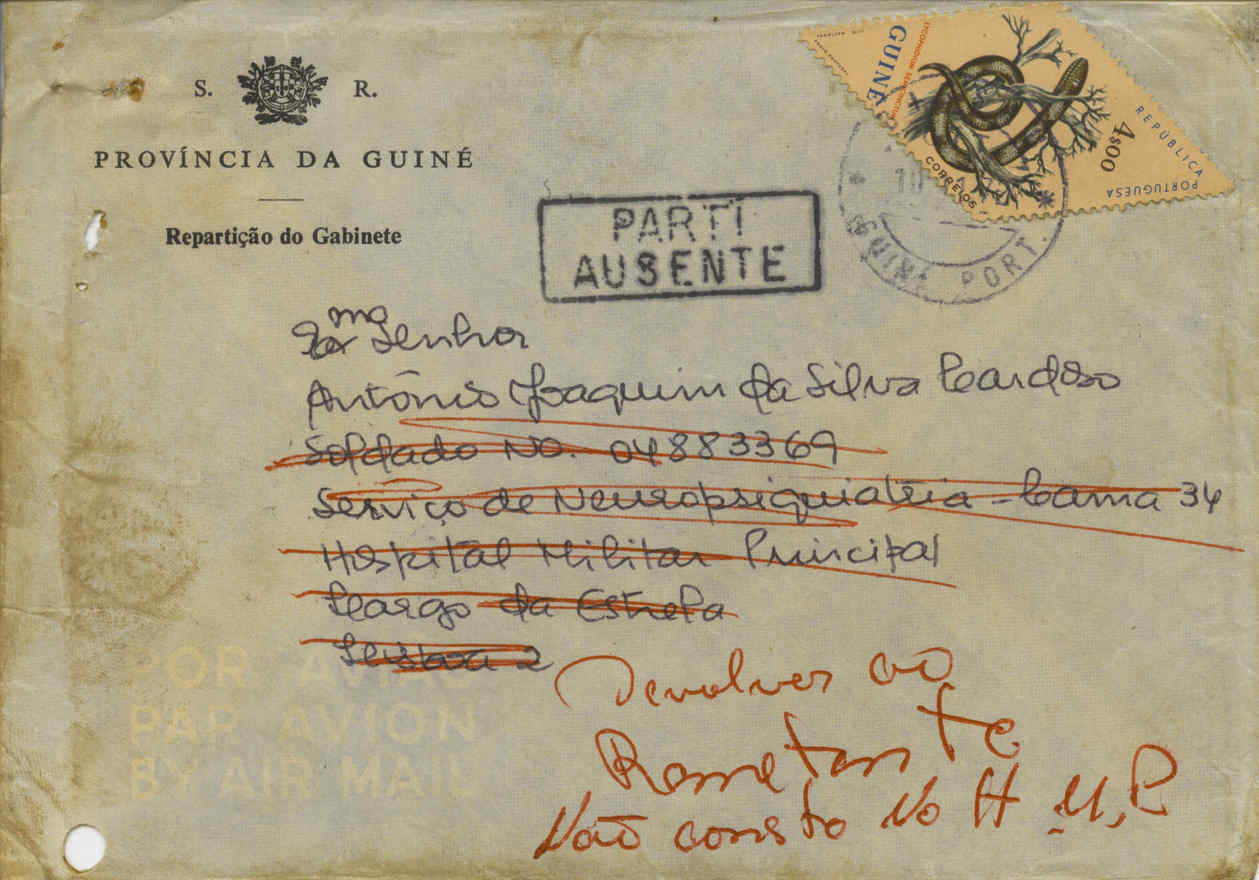 S. R.
PROVÍNCIA DA GUINÉ
Repartição do Gabinete
GUINÉ
REPÚBLICA
PORTUGUESA
4$00
CORREIOS
PARTI
AUSENTE
10
GUINÉ PORT.
Senhor
António Joaquim da Silva Cardoso
Soldado NO. 04883369
Serviço de Neuropsiquiatria - Cama 34
Hospital Militar Principal
Largo da Estrela
Lisboa 2
POR AVIÃO
PAR AVION
BY AIR MAIL
Devolver ao
Remetente
Não consta No H.M.P